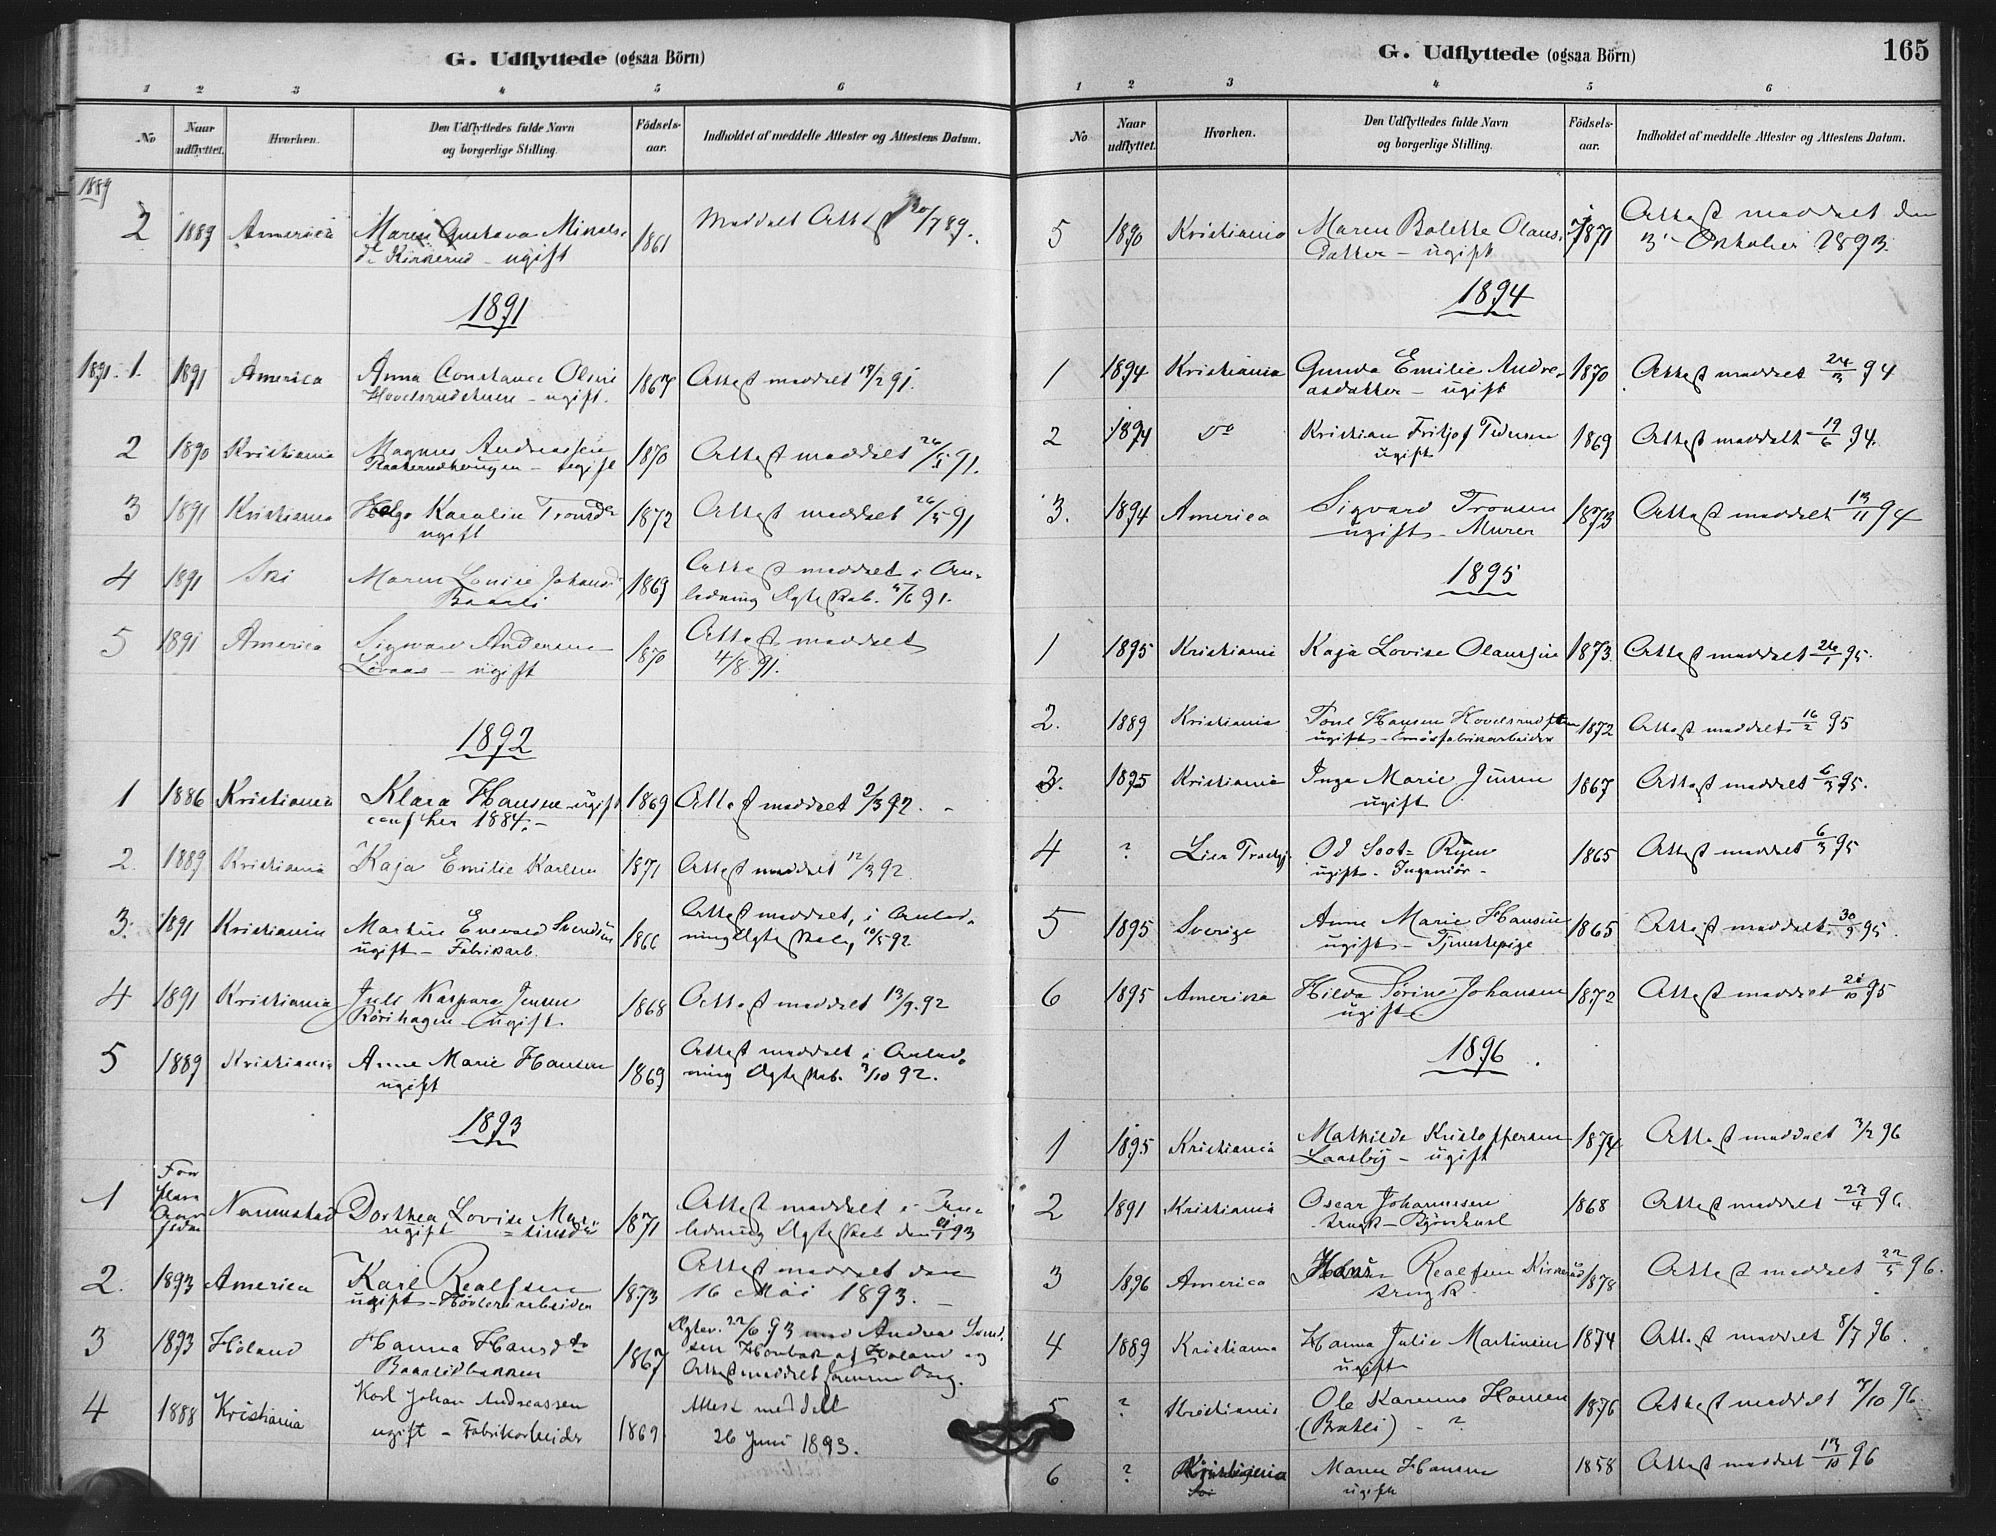 G. Udflyttede (ogsaa Börn)
1 2 3 4 5 6
No
Naar udflyttet.
Hvorhen.
Den Udflyttedes fulde Navn
og borgerlige Stilling.
Födsels-
aar.
Indholdet af meddelte Attester og Attestens Datum.
1889
2 1889 America Maren Gustava 1861 Meddelt Attest 20/7 89.
Kirkerud - ugift
1891
1891. 1. 1891 America Anna Constance Olsen 1867 Attest meddelt 19/2 91.
ugift.
2 1890 Kristiania Magnus Andreassen 1870 Attest meddelt 26/5 91.
ugift
3 1891 Kristiania Helga Karoline Tronsdr 1872 Attest meddelt 26/5 91
ugift
4 1891 Ski Maren Louise Johansd 1869 Attest meddelt i An-
ledning Ægteskab. 4/6 91.
5 1891 America Sigvard Andersen 1870 Attest meddelt
Lövaas - ugift 4/8 91.
1892
1 1886 Kristiania Klara Hansen ugift 1869 Attest meddelt 2/3 92. -
conf her 1884. -
2. 1889 Kristiania Kaja Emilie Karlsen 1871 Attest meddelt 12/3 92.
3. 1891 Kristiania Martin Enevald Svendsen 1866 Attest meddelt, i Anled-
ugift - Fabrikarb. ning Ægteskab, 10/5 92
4 1891 Kristiania Julie Kaspara Jensen 1868 Attest meddelt 13/9. 92
Rörihagen - ugift
5 1889 Kristiania Anne Marie Hansen 1869 Attest meddelt i Anled-
ugift ning Ægteskab. 3/10 92.
1893
1 For flere Aar siden Nannestad Dorthea Lovise Mar- 1871 Attest meddelt i An-
ugift = tinsdr ledning Ægteskab den 93
2. 1893 America Karl Realfsen 1873 Attest meddelt den
ugift - Hövleriarbeider 16 Mai 1893. -
3 1893 Höland Hanna Hansdtr 1867 Ægtev. 22/6 93 med Andreas Svend-
Baastidbakken sen af Höland og
Attest meddelt samme Dag.
4 1888 Kristiania Karl Johan Andreassen 1869 Attest meddelt
ugift - Fabrikarbeider 26 Juni 1893.
G. Udflyttede (ogsaa Börn)
165
1 2 3 4 5 6
No
Naar udflyttet.
Hvorhen.
Den Udflyttedes fulde Navn
og borgerlige Stilling.
Födsels-
aar.
Indholdet af meddelte Attester og Attestens Datum.
5 1890 Kristiania Maren Bolette Olaus- 1871 Attest meddelt den
datter - ugift 3' Oktober 1893.
1894
1 1894 Kristiania Gunda Emilie Andre- 1870 Attest meddelt 24/3 94
asdatter - ugift
2 1894 Do Kristian Fritjof Pedersen 1869 Attest meddelt 19/6 94.
ugift
3. 1894 America Sigvard Tronsen 1873 Attest meddelt 13/11 94
ugift - Murer
1895
1 1895 Kristiania Kaja Lovise Olaussen 1873. Attest meddelt 26/1 95.
2. 1889 Kristiania Hansen 1872 Attest meddelt 16/2 95
ugift - Smörfabrikarbeider
3. 1895 Kristiania Inga Marie Jensen 1867 Attest meddelt 6/3 95.
ugift
4 ? Lier Od Soot= Ryen 1865 Attest meddelt 6/3 95
ugift - Ingeniör -
5 1895 Sverige Anne Marie Hansen 1865 Attest meddelt 30/9 95.
ugift - Tjenestepige
6 1895 Amerika Hilda Sörine Johansen 1872 Attest meddelt 21/10 95
ugift
1896
1 1895 Kristiania Mathilde Kristoffersen 1874 Attest meddelt 3/2 96
Laasby - ugift
2 1891 Kristiania Oscar Johannesen 1868 Attest meddelt 27/4 96.
3 1896 America Hans Realfsen Kirkerud 1878 Attest meddelt 22/5 96.
4 1889 Kristiania Hanna Julie Martinsen 1874 Attest meddelt 8/7 96.
ugift
5 ? Kristiania Ole Karenus Hansen 1876 Attest meddelt 7/10 96.
- ?
6 ? Kristiania Maren Hansen 1858 Attest meddelt 13/10 96
Ski ugift